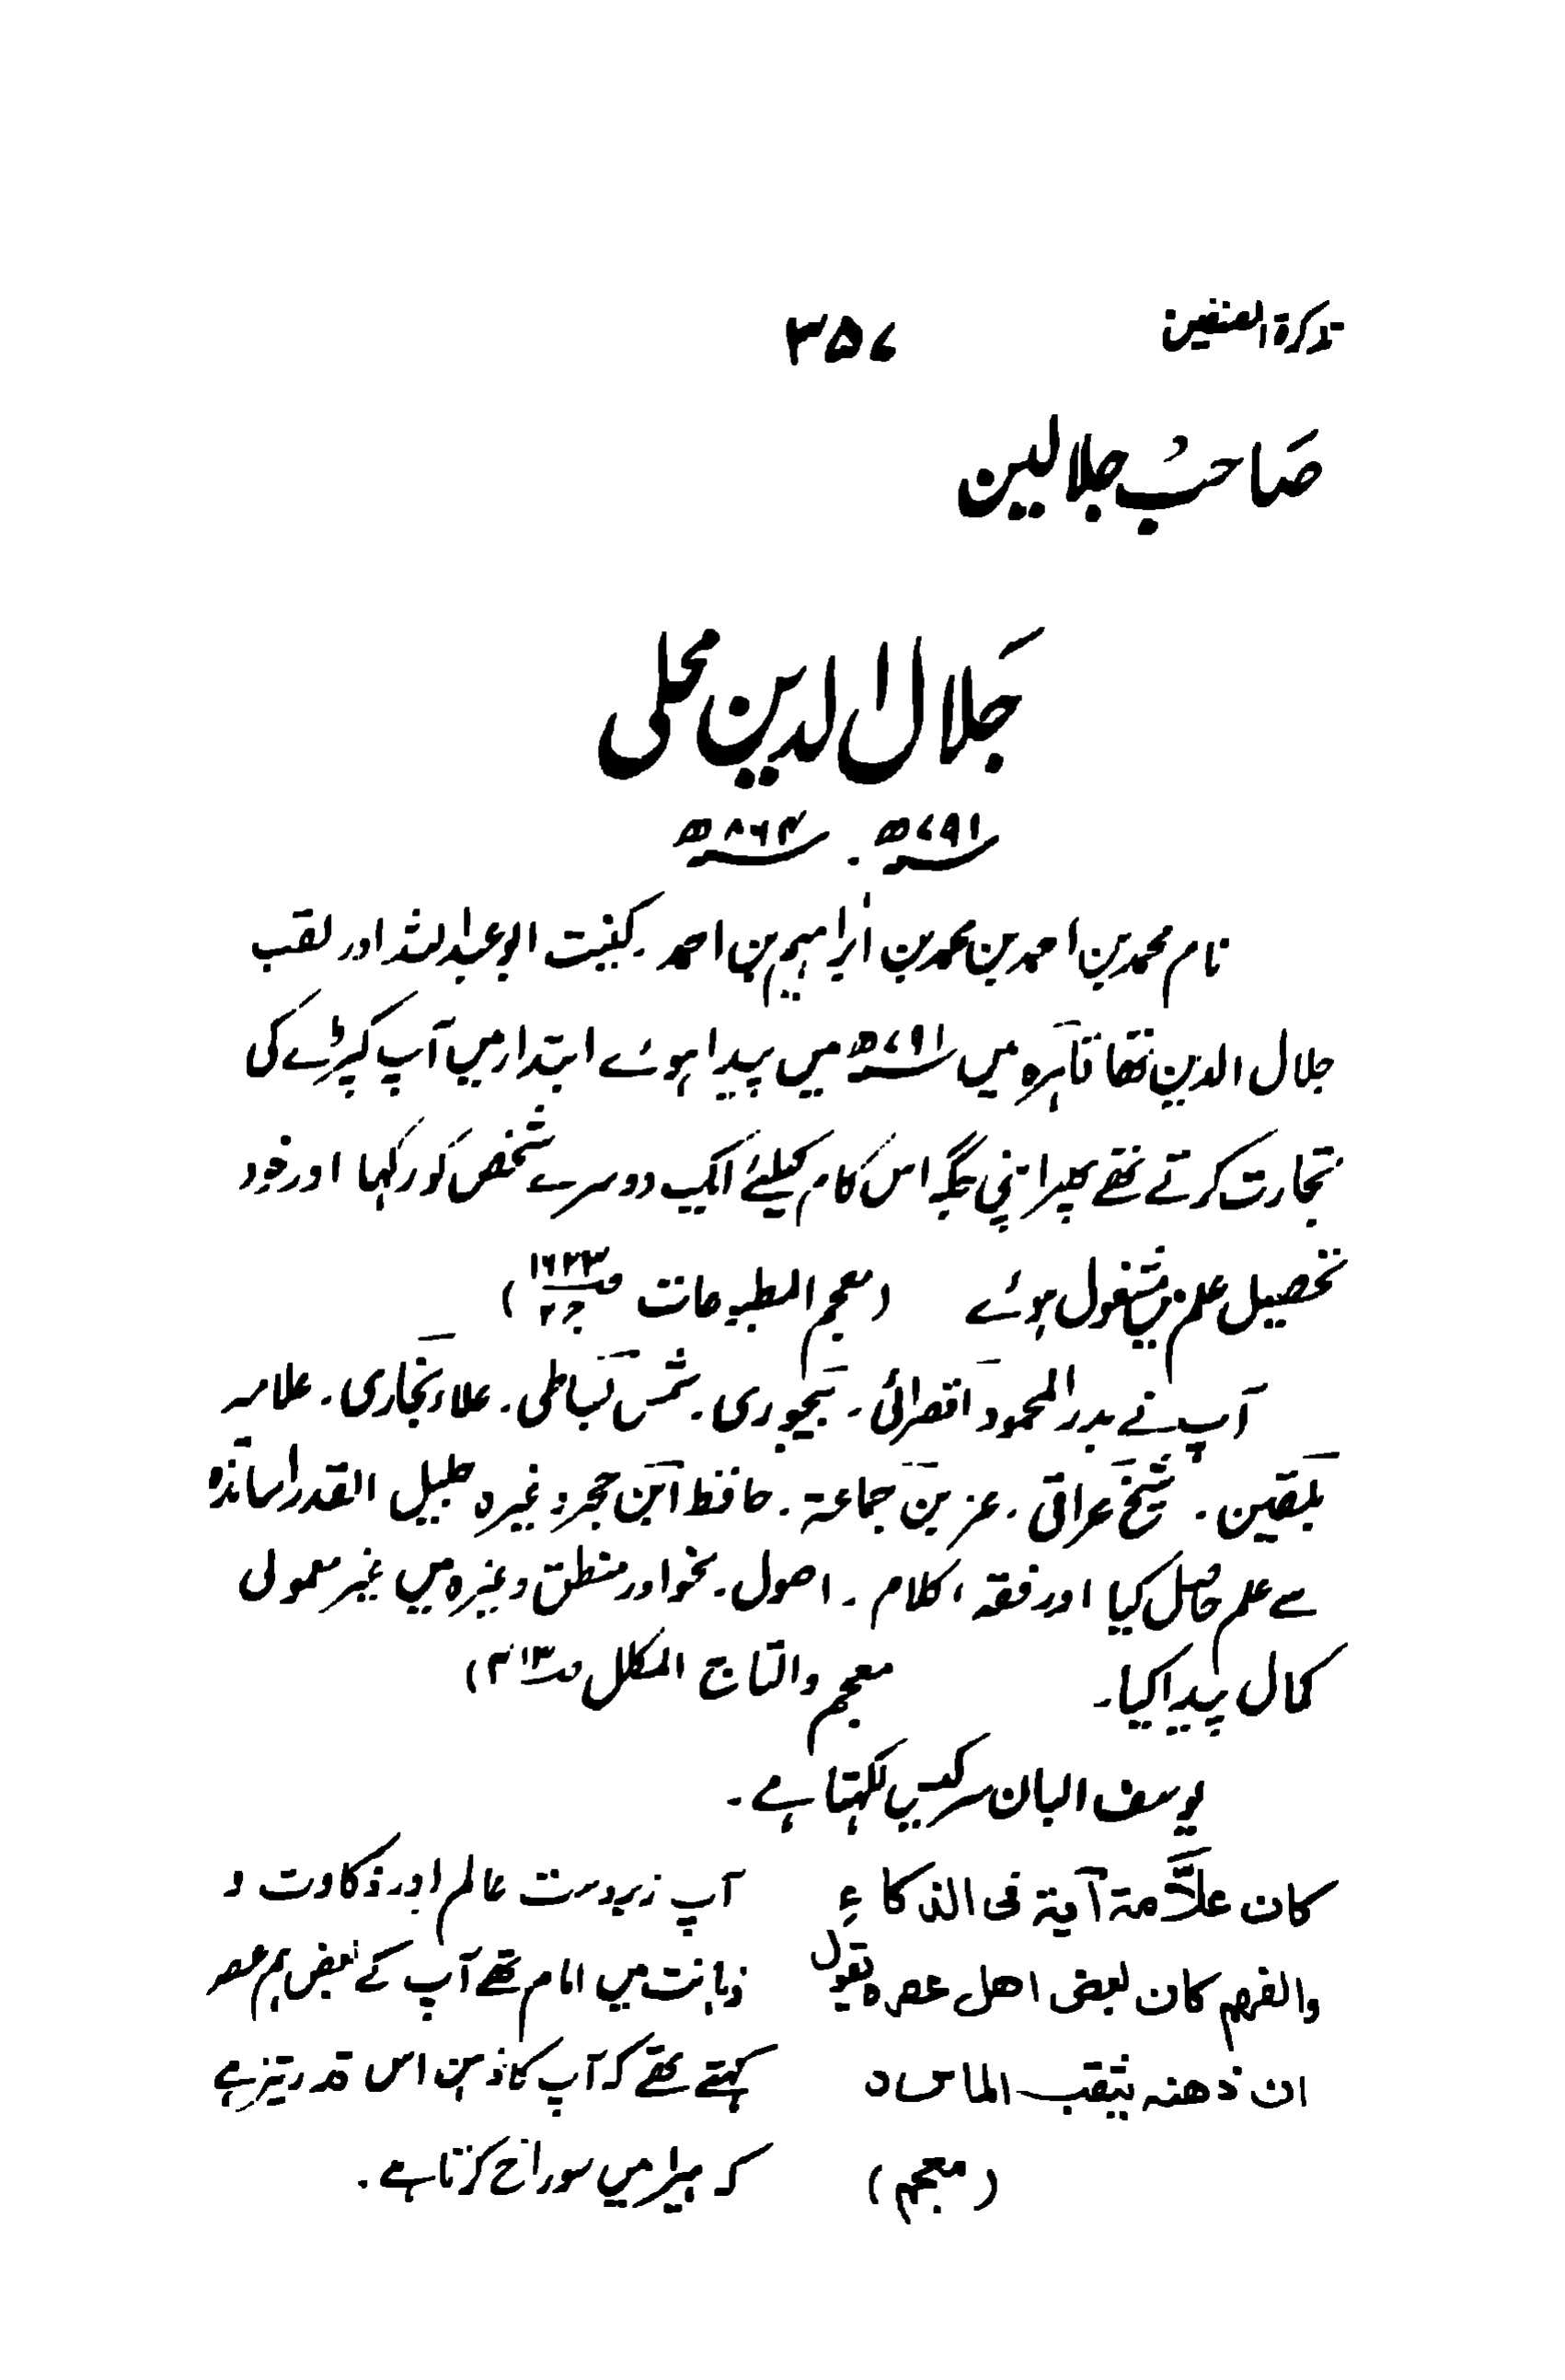 تذکرۃ المصنفین ۳۵۷
صَاحبُ جلالین
جَلال الدین محلی
۷۹۱ھ ۔ ۸۶۴ھ
نام محمد بن احمد بن محمد بن ابراہیم بن احمد ۔ کنیت ابو عبداللہ اور لقب
جلال الدین تھا قاہرہ میں ۷۹۱ھ میں پیدا ہوئے ابتدار میں آپ کپڑے کی
تجارت کرتے تھے پھر اپنی جگہ اس کام کیلئے ایک دوسرے شخص کو رکھا اور خود
تحصیل علم میں مشغول ہوئے (معجم المطبوعات ص۱۶۲۳ ج۲)
آپ نے بدر المحمود اقصرائی ۔ بیجوری ۔ شمس بساطی ۔ علاء بخاری ۔ علامہ
بلقین ۔ شیخ عراقی ۔ عز بن جماعۃ ۔ حافظ ابن حجر وغیرہ جلیل القدر اساتذہ
سے علم حاصل کیا اور فقہ ، کلام ۔ اصول ۔ نحو اور منطق وغیرہ میں غیر معمولی
کمال پیدا کیا۔ معجم والتاج المکلل )
یوسف البان سرکیس لکھتا ہے ۔
کان علاَّمۃ آیۃ فی الذکاءِ آپ زبردست عالم اور ذکاوت و
والفہم کان بعض اھل عصرہ یقول ذہانت میں امام تھے آپ کے بعض ہم عصر
ان ذھنہ یثقب الماس د کہتے تھے کہ آپ کا ذہن اس قدر تیز ہے
(معجم) کہ ہیرا میں سوراخ کرتا ہے ۔